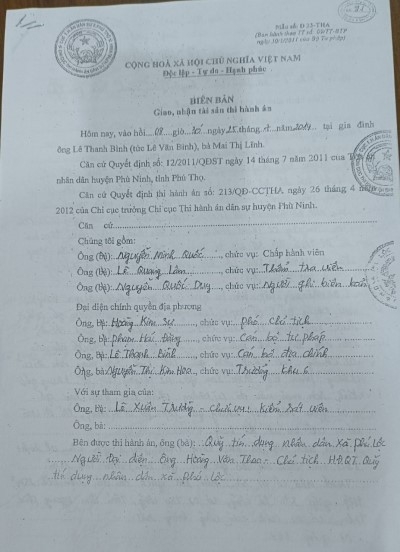 21
Mẫu số: Đ 13-THA
(Ban hành theo TT số 09/TT-BTP
của Bộ Tư pháp)
CỘNG HOÀ XÃ HỘI CHỦ NGHĨA VIỆT NAM
Độc lập - Tự do - Hạnh phúc
BIÊN BẢN
Giao, nhận tài sản thi hành án
Hôm nay, vào hồi 08 giờ 30 ngày 25 tháng năm 2014 tại gia đình
ông Lê Thanh Bình (tức Lê Văn Bình), bà Mai Thị Lĩnh.
Căn cứ Quyết định số: 12/2011/QĐST ngày 14 tháng 7 năm 2011 của Toà án
nhân dân huyện Phù Ninh, tỉnh Phú Thọ.
Căn cứ Quyết định thi hành án số: 213/QĐ-CCTHA ngày 26 tháng 4 năm
2012 của Chi cục trưởng Chi cục Thi hành án dân sự huyện Phù Ninh.
Căn cứ
Chúng tôi gồm:
Ông (bà): Nguyễn Minh Quốc, chức vụ: Chấp hành viên
Ông (bà): Lê Quang Lâm, chức vụ: Thẩm tra viên
Ông (bà): Nguyễn Quốc Duy, chức vụ: Người ghi biên bản
Đại diện chính quyền địa phương
Ông, bà: Hoàng Kim Sự, chức vụ: phó chủ tịch
Ông, bà: Phạm Hải Đăng, chức vụ: Cán bộ tư pháp
Ông, bà: Lê Thanh Bình, chức vụ: Cán bộ địa chính
Ông, bà: Nguyễn Thị Kim Hoa, chức vụ: Trưởng khu 6
Với sự tham gia của:
Ông, bà: Lê Xuân Trường - chức vụ: Kiểm sát viên
Ông, bà:
Bên được thi hành án, ông (bà): Quỹ tín dụng nhân dân xã phú Lộc
Người đại diện Ông Hoàng Văn Thao - Chủ tịch HĐQT Quỹ
tín dụng nhân dân xã phú Lộc